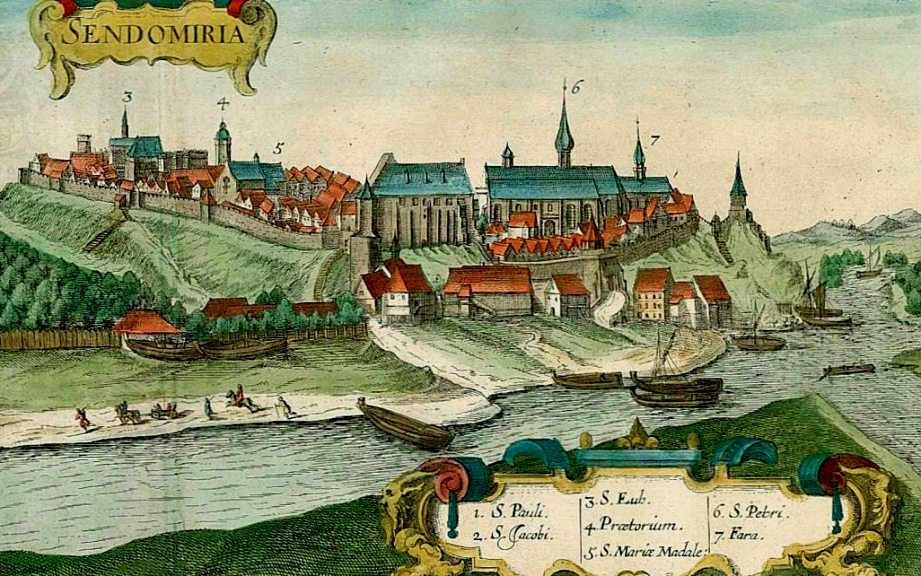 SENDOMIRIA
3
4
5
6
7
1. S. Pauli.
2. S. Jacobi.
3. S. Euh.
4. Prætorium.
5. S. Mariæ Madale:
6. S. Petri.
7. Fara.